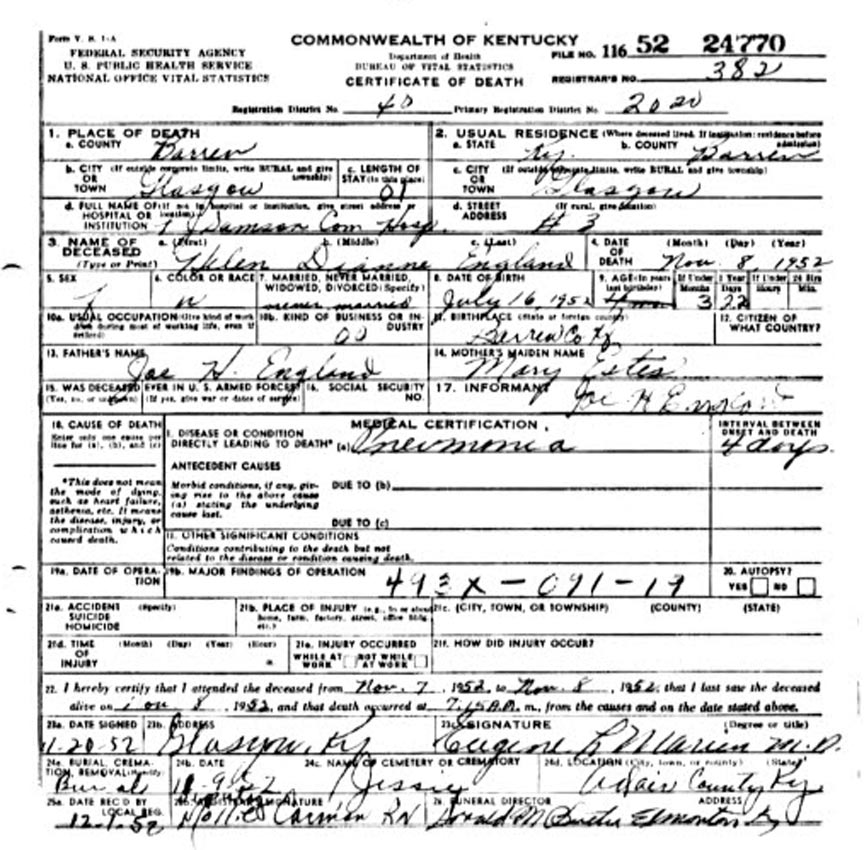 Form V. S. 1-A
FEDERAL SECURITY AGENCY
U. S. PUBLIC HEALTH SERVICE
NATIONAL OFFICE VITAL STATISTICS
COMMONWEALTH OF KENTUCKY
Department of Health
BUREAU OF VITAL STATISTICS
CERTIFICATE OF DEATH
FILE NO. 116 52 24770
REGISTRAR'S NO. 382
Registration District No. 40 Primary Registration District No. 2020
1. PLACE OF DEATH
a. COUNTY Barren
2. USUAL RESIDENCE (Where deceased lived. If institution: residence before admission)
a. STATE Ky. b. COUNTY Barren
b. CITY (If outside corporate limits, write RURAL and give township)
OR TOWN Glasgow
c. LENGTH OF STAY (in this place) 01
c. CITY (If outside corporate limits, write RURAL and give township)
OR TOWN Glasgow
d. FULL NAME OF (If not in hospital or institution, give street address or location)
HOSPITAL OR INSTITUTION T J Samson Com Hosp.
d. STREET ADDRESS (If rural, give location) # 3
3. NAME OF DECEASED (Type or Print)
a. (First) b. (Middle) c. (Last)
Helen Dianne England
4. DATE OF DEATH (Month) (Day) (Year)
Nov. 8 1952
5. SEX F
6. COLOR OR RACE W
7. MARRIED, NEVER MARRIED, WIDOWED, DIVORCED (Specify) never married
8. DATE OF BIRTH July 16, 1952
9. AGE (In years last birthday) If Under 1 Year Months 3 Days 22 If Under 24 Hrs Hours Min.
10a. USUAL OCCUPATION (Give kind of work done during most of working life, even if retired)
10b. KIND OF BUSINESS OR INDUSTRY 00
11. BIRTHPLACE (State or foreign country) Barren Co Ky
12. CITIZEN OF WHAT COUNTRY?
13. FATHER'S NAME Joe H. England
14. MOTHER'S MAIDEN NAME Mary Estes
15. WAS DECEASED EVER IN U. S. ARMED FORCES? (Yes, no, or unknown) (If yes, give war or dates of service)
16. SOCIAL SECURITY NO.
17. INFORMANT Joe H England
18. CAUSE OF DEATH
Enter only one cause per line for (a), (b), and (c)
*This does not mean the mode of dying, such as heart failure, asthenia, etc. It means the disease, injury, or complication which caused death.
MEDICAL CERTIFICATION
I. DISEASE OR CONDITION DIRECTLY LEADING TO DEATH* (a) Pneumonia
INTERVAL BETWEEN ONSET AND DEATH 4 days
ANTECEDENT CAUSES
Morbid conditions, if any, giving rise to the above cause (a) stating the underlying cause last.
DUE TO (b)
DUE TO (c)
II. OTHER SIGNIFICANT CONDITIONS
Conditions contributing to the death but not related to the disease or condition causing death.
19a. DATE OF OPERATION
19b. MAJOR FINDINGS OF OPERATION
493X-091-19
20. AUTOPSY?
YES NO
21a. ACCIDENT SUICIDE HOMICIDE (Specify)
21b. PLACE OF INJURY (e.g., in or about home, farm, factory, street, office bldg., etc.)
21c. (CITY, TOWN, OR TOWNSHIP) (COUNTY) (STATE)
21d. TIME OF INJURY (Month) (Day) (Year) (Hour)
21e. INJURY OCCURRED
WHILE AT WORK NOT WHILE AT WORK
21f. HOW DID INJURY OCCUR?
22. I hereby certify that I attended the deceased from Nov. 7, 1952, to Nov. 8, 1952, that I last saw the deceased
alive on 8, 1952, and that death occurred at 7:15 A. m., from the causes and on the date stated above.
23a. DATE SIGNED 11-20-52
23b. ADDRESS Glasgow, Ky
23c. SIGNATURE (Degree or title) Eugene L Marien M.D.
24a. BURIAL, CREMATION, REMOVAL (Specify) Burial
24b. DATE
24c. NAME OF CEMETERY OR CREMATORY Jessie
24d. LOCATION (City, town, or county) (State) Adair County Ky
25a. DATE REC'D BY LOCAL REG. 12-1-52
25b. REGISTRAR'S SIGNATURE Mollie Carman RN
26. FUNERAL DIRECTOR ADDRESS
Donald M Butler Edmonton Ky